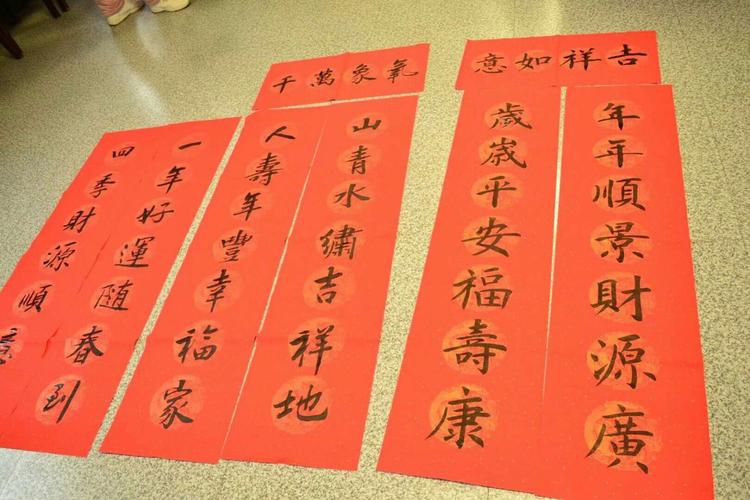 吉祥如意
年年順景財源廣
歲歲平安福壽康
氣象萬千
山青水繡吉祥地
人壽年豐幸福家
一年好運随春到
四季財源順